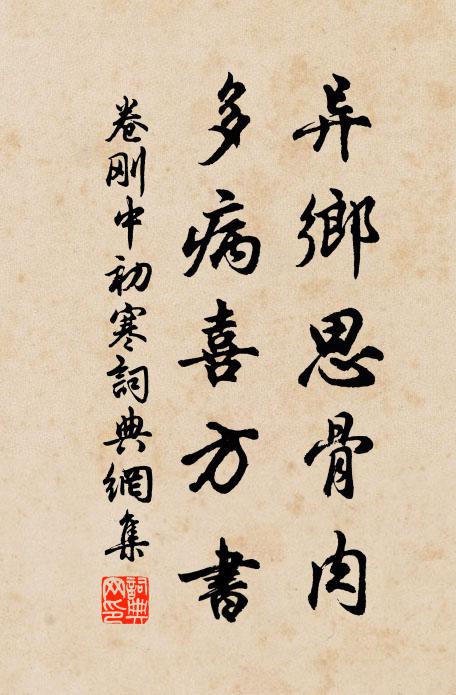 异鄉思骨肉
多病喜方書
卷刚中初寒詞典網集
詞典网印